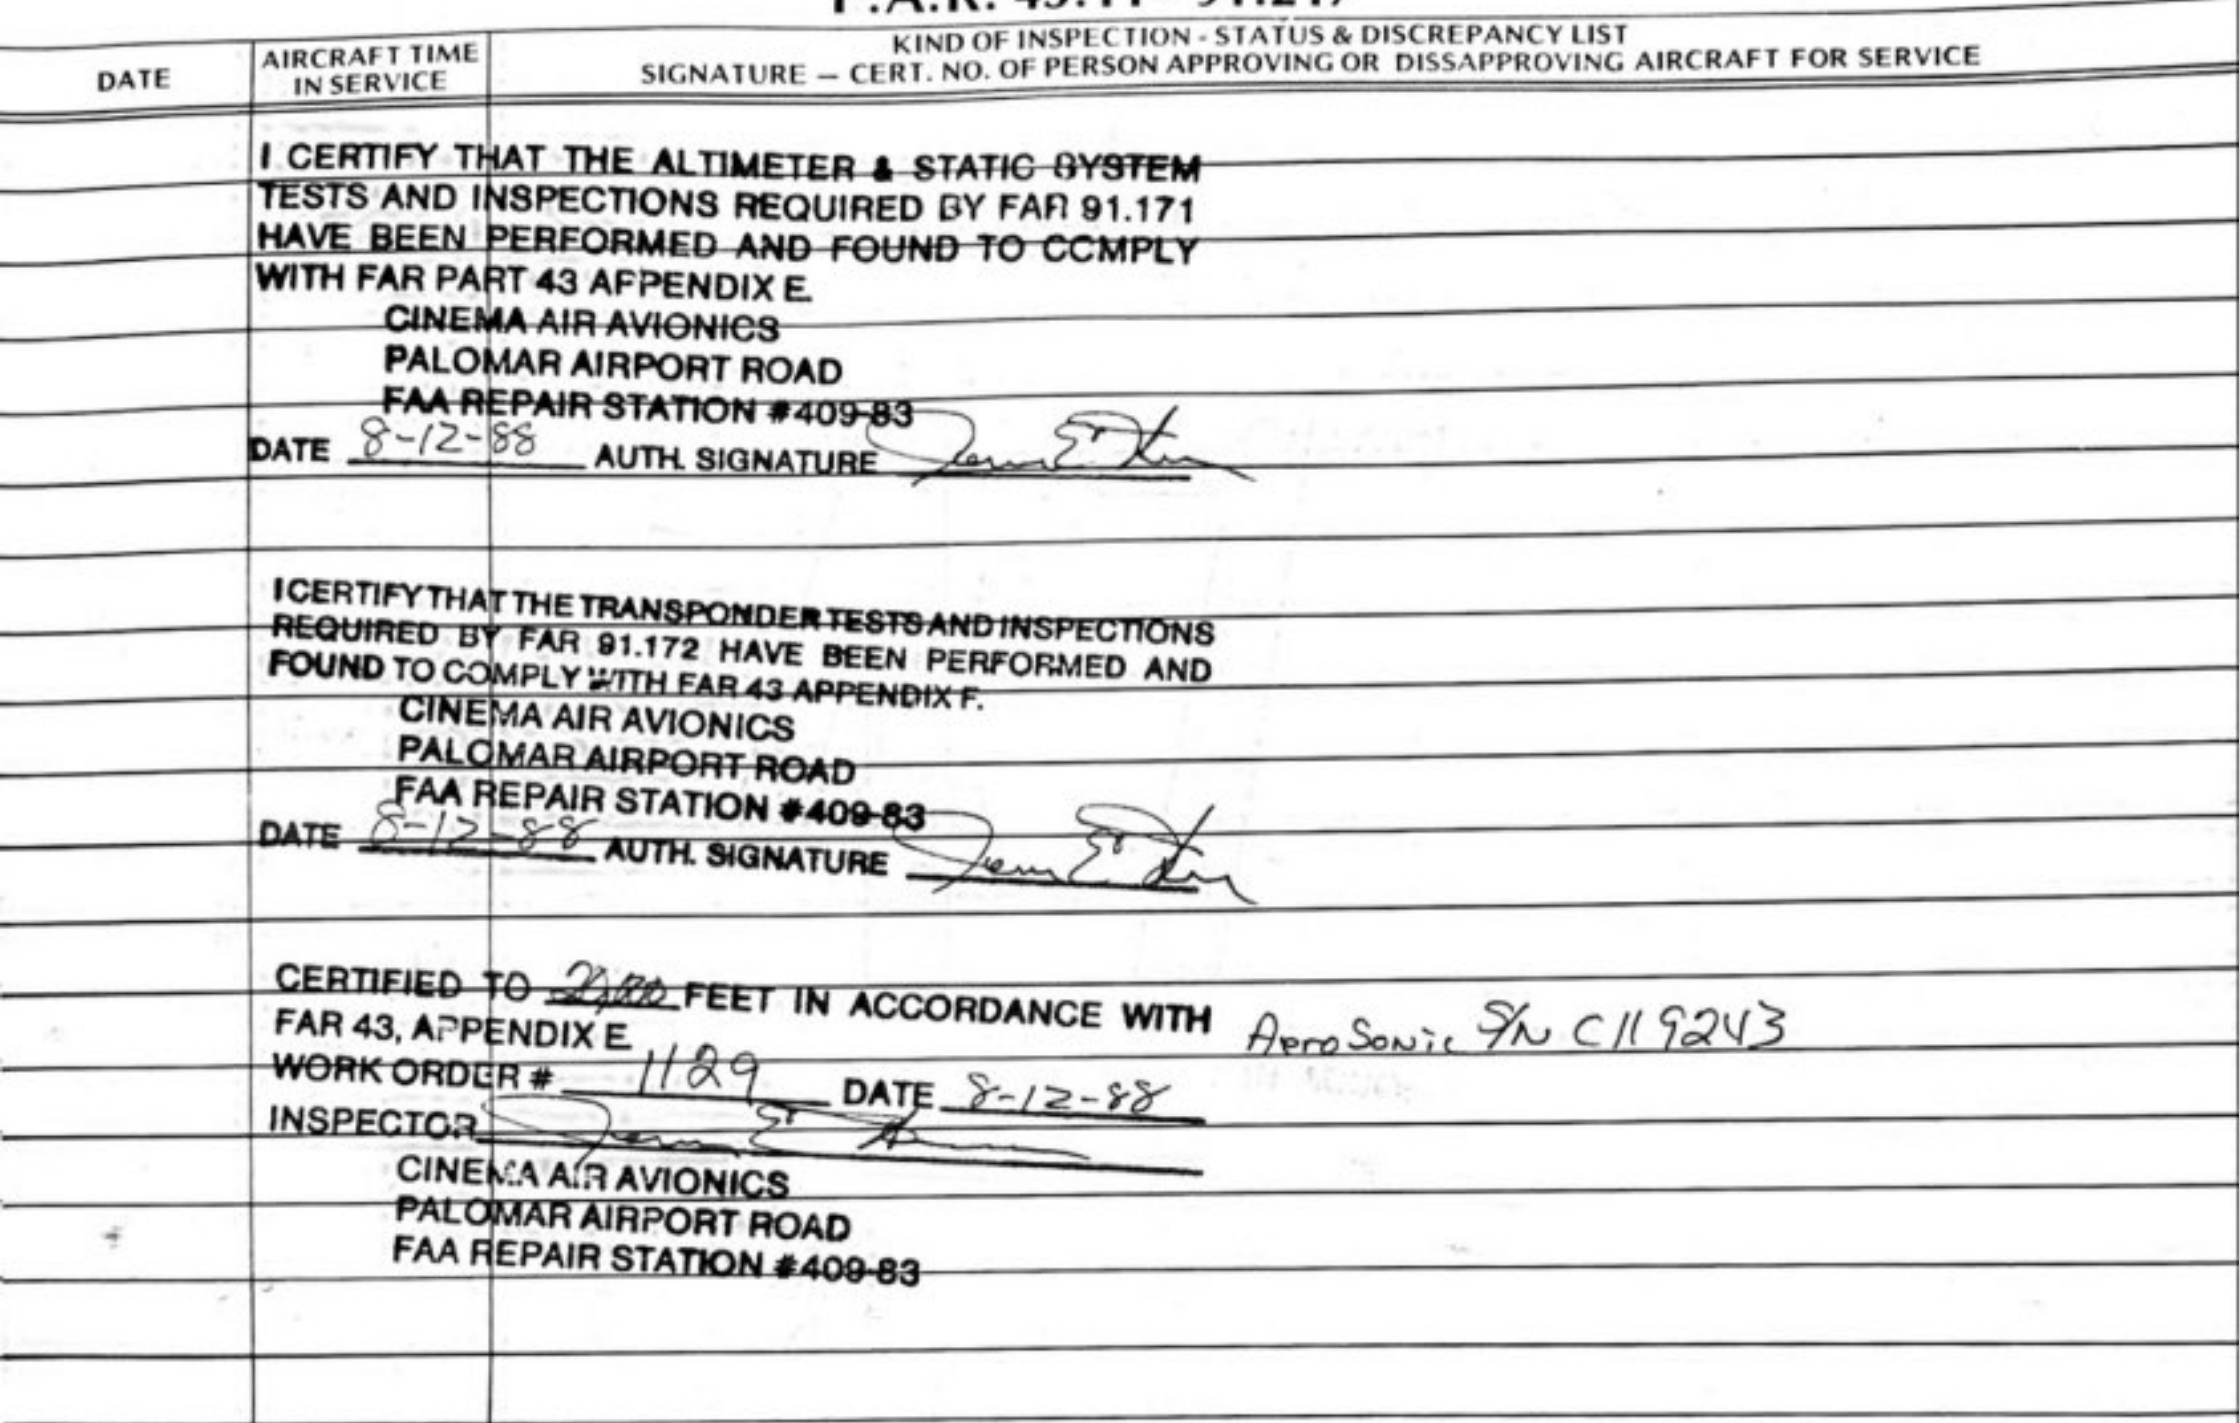 DATE
AIRCRAFT TIME
IN SERVICE
KIND OF INSPECTION - STATUS & DISCREPANCY LIST
SIGNATURE — CERT. NO. OF PERSON APPROVING OR DISSAPPROVING AIRCRAFT FOR SERVICE
I CERTIFY THAT THE ALTIMETER & STATIC SYSTEM
TESTS AND INSPECTIONS REQUIRED BY FAR 91.171
HAVE BEEN PERFORMED AND FOUND TO COMPLY
WITH FAR PART 43 APPENDIX E.
CINEMA AIR AVIONICS
PALOMAR AIRPORT ROAD
FAA REPAIR STATION #409-83
DATE 8-12-88 AUTH. SIGNATURE
I CERTIFY THAT THE TRANSPONDER TESTS AND INSPECTIONS
REQUIRED BY FAR 91.172 HAVE BEEN PERFORMED AND
FOUND TO COMPLY WITH FAR 43 APPENDIX F.
CINEMA AIR AVIONICS
PALOMAR AIRPORT ROAD
FAA REPAIR STATION #409-83
DATE 8-12-88 AUTH. SIGNATURE
CERTIFIED TO FEET IN ACCORDANCE WITH AeroSonic S/N C119243
FAR 43, APPENDIX E
WORK ORDER # 1129 DATE 8-12-88
INSPECTOR
CINEMA AIR AVIONICS
PALOMAR AIRPORT ROAD
FAA REPAIR STATION #409-83